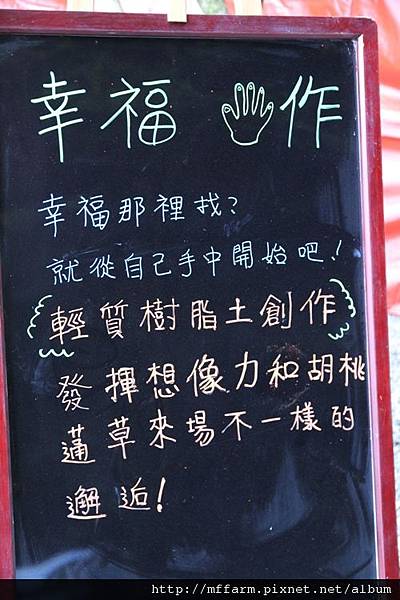 幸福 作
幸福那裡找?
就從自己手中開始吧!
輕質樹脂土創作
發揮想像力和胡桃
蓪草來場不一樣的
邂逅!
http://mffarm.pixnet.net/album